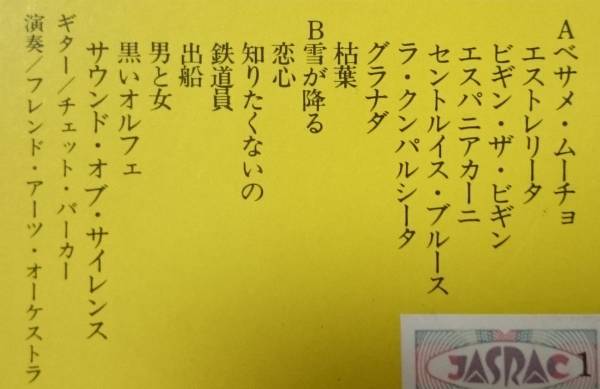 Aベサメ・ムーチョ
エストレリータ
ビギン・ザ・ビギン
エスパニアカーニ
セントルイス・ブルース
ラ・クンパルシータ
グラナダ
枯葉
B雪が降る
恋心
知りたくないの
鉄道員
出船
男と女
黒いオルフェ
サウンド・オブ・サイレンス
ギター/チェット・パーカー
演奏/フレンド・アーツ・オーケストラ
JASRAC
1